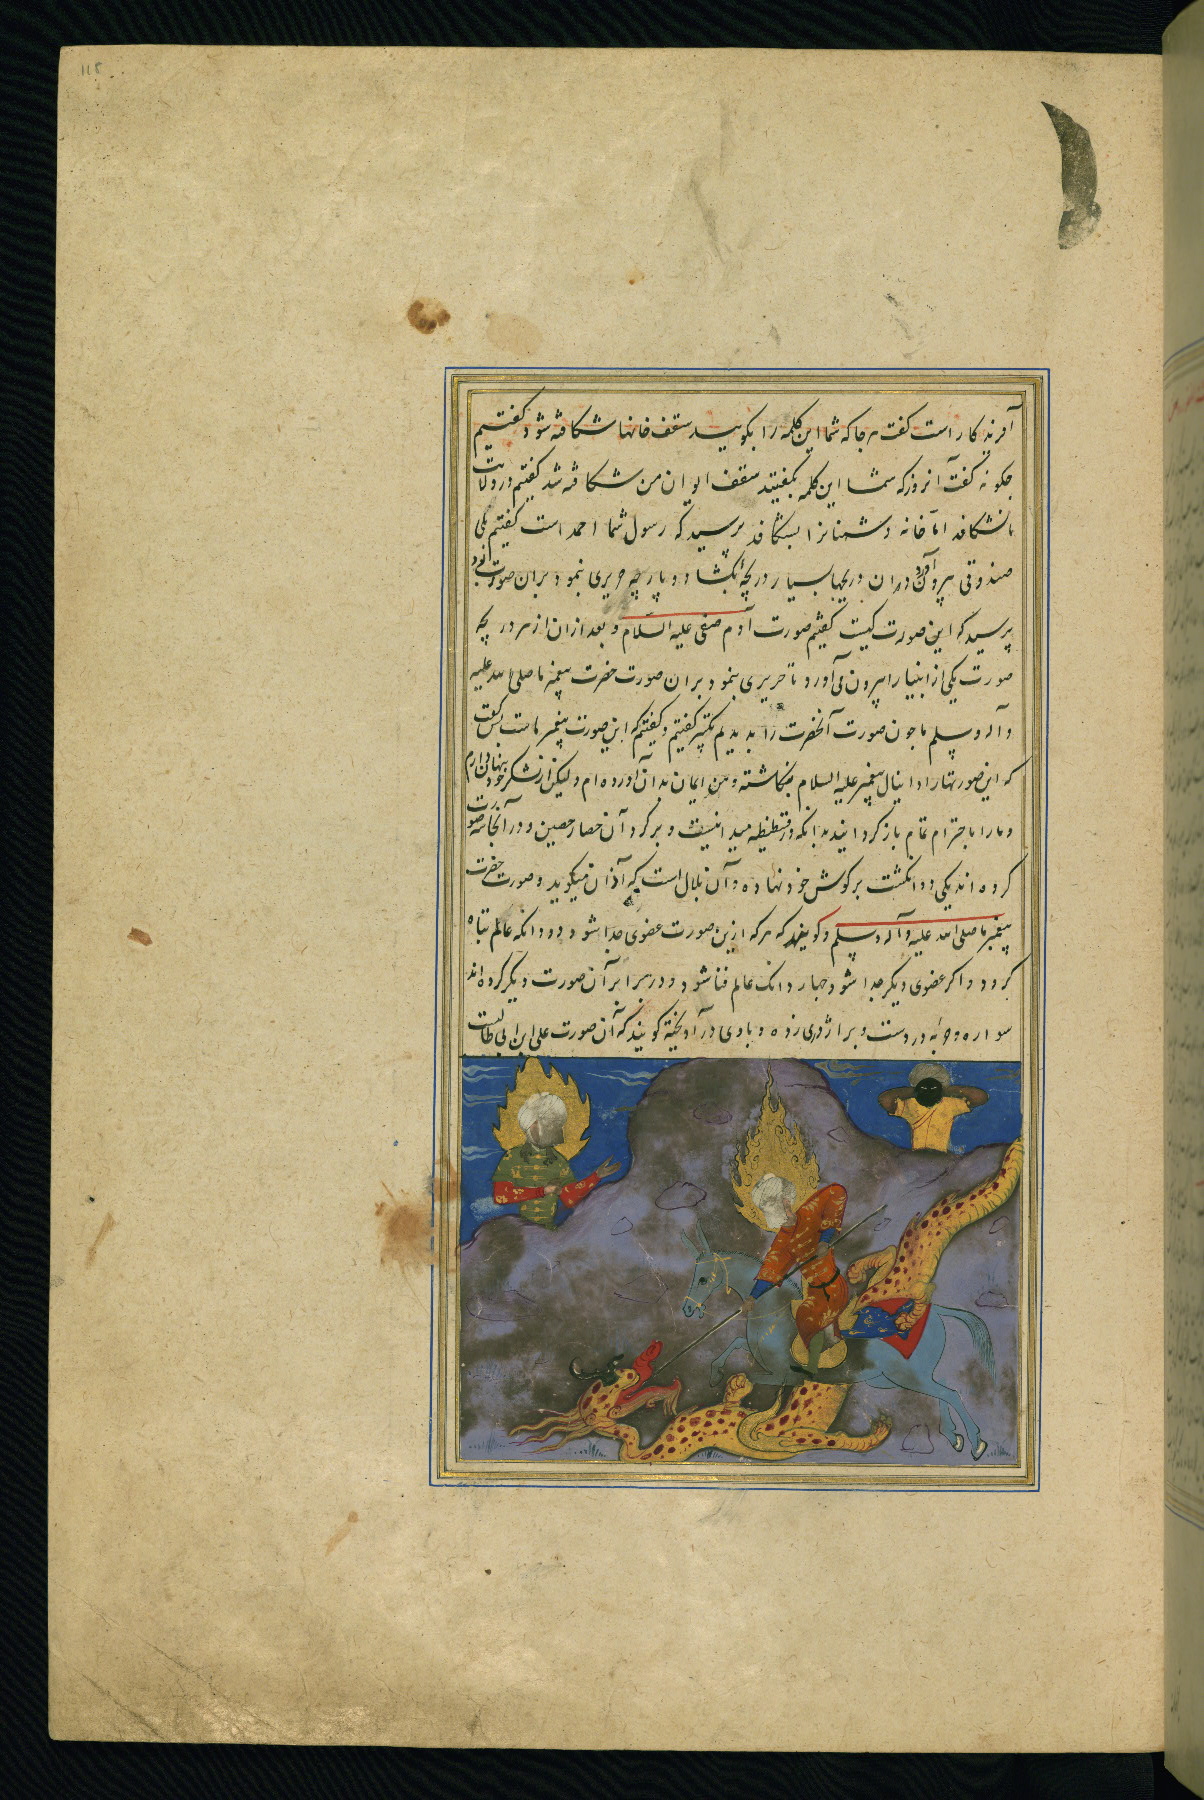 118
آفریدکار است گفت هرجا که شما این کلمه را بگویید سقف خانها شکافته شود گفتیم
چگونه گفت آنروز که شما این کلمه بگفتید سقف ایوان من شکافته شد گفتیم در ولایت
ما نشکافد اما خانه دشمنانرا بشکافد پرسید که رسول شما احمد است گفتیم بلی
صندوقی بیرون آورد و دران دریچها بسیار دریچه بگشاد و پارچه حریری نمود بران صورت
پرسید که این صورت کیست گفتیم صورت آدم صفی علیه السلام و بعد ازان از هر دریچه
صورت یکی از انبیا را بیرون می آورد تا حریری بنمود بران صورت حضرت پیغمبر ما صلی الله علیه
و آله و سلم ما چون صورت آنحضرت را بدیدیم تکبیر گفتیم و گفتیم که این صورت پیغمبر ماست پس گفت
که این صورتها را دانیال پیغمبر علیه السلام نگاشته و من ایمان بدان آورده ام ولیکن از لشکر خود پنهان دارم
و ما را باحترام تمام باز گردانیدند بدانکه در قسطنطنیه میدانیست و بر گرد آن حصار حصین و در آنجا سه صورت
کرده اند یکی دو انگشت بر گوش خود نهاده و آن بلال است که آذان میگوید و صورت حضرت
پیغمبر ما صلی الله علیه و آله و سلم و گویند که هر که ازین صورت عضوی جدا شود دو دانک عالم تباه
گردد و اگر عضوی دیگر جدا شود چهار دانک عالم فنا شود و در برابر آن صورت دیگر کرده اند
سواره و حربه در دست و بر اژدری زده و با وی در آویخته گویند که آن صورت علی ابن ابی طالبست